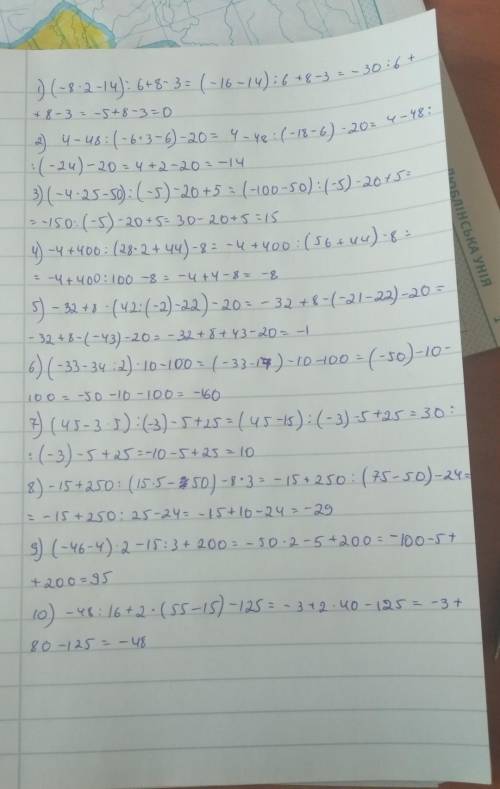 1) (-8·2-14):6+8-3=(-16-14):6+8-3=-30:6+
+8-3=-5+8-3=0
2) 4-48:(-6·3-6)-20=4-48:(-18-6)-20=4-48:
:(-24)-20=4+2-20=-14
3) (-4·25-50):(-5)-20+5=(-100-50):(-5)-20+5=
=-150:(-5)-20+5=30-20+5=15
4) -4+400:(28·2+44)-8=-4+400:(56+44)-8=
=-4+400:100-8=-4+4-8=-8
5) -32+8-(42:(-2)-22)-20=-32+8-(-21-22)-20=
-32+8-(-43)-20=-32+8+43-20=-1
6) (-33-34:2)-10-100=(-33-17)-10-100=(-50)-10-
100=-50-10-100=-160
7) (45-3·5):(-3)-5+25=(45-15):(-3)-5+25=30:
:(-3)-5+25=-10-5+25=10
8) -15+250:(15·5-50)-8·3=-15+250:(75-50)-24=
=-15+250:25-24=-15+10-24=-29
9) (-46-4)·2-15:3+200=-50·2-5+200=-100-5+
+200=95
10) -48:16+2·(55-15)-125=-3+2·40-125=-3+
80-125=-48
ЛЮБЛІНСЬКА УНІЯ